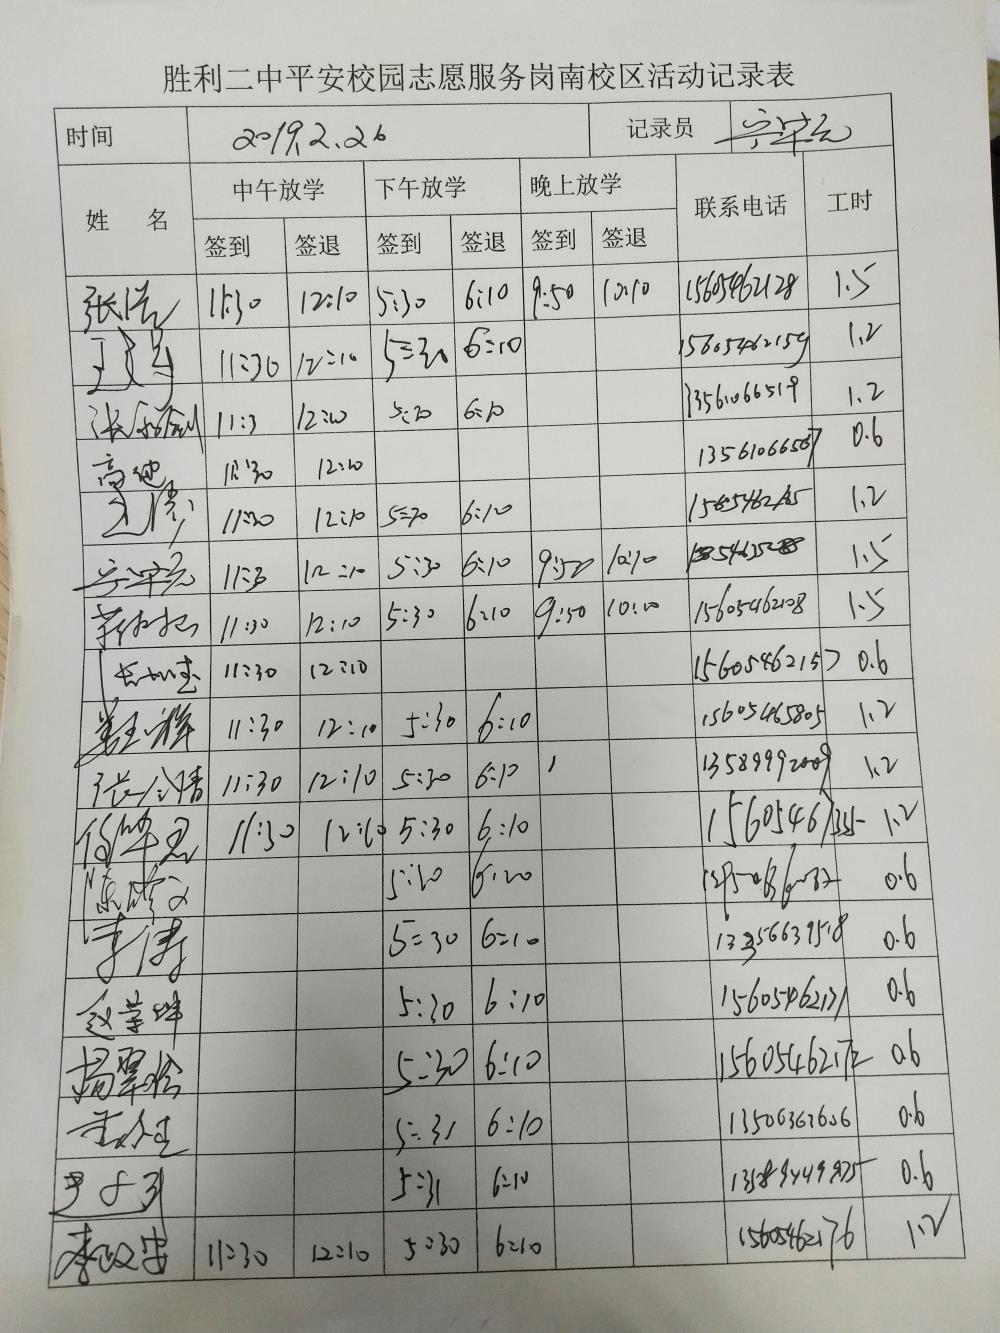 胜利二中平安校园志愿服务岗南校区活动记录表
时间 2019.2.26 记录员
姓 名 中午放学 下午放学 晚上放学 联系电话 工时
签到 签退 签到 签退 签到 签退
张浩 11:30 12:10 5:30 6:10 9:50 10:10 15605462128 1.5
11:30 12:10 5:30 6:10 15605462159 1.2
11:3 12:10 5:30 6:10 13561066519 1.2
高地 11:30 12:10 13561066567 0.6
11:30 12:10 5:30 6:10 1.2
11:3 12:10 5:30 6:10 9:50 10:10 1.5
11:30 12:10 5:30 6:10 9:50 10:10 15605462108 1.5
11:30 12:10 15605462157 0.6
姜玉祥 11:30 12:10 5:30 6:10 15605465805 1.2
11:30 12:10 5:30 6:10 13589992009 1.2
11:30 12:10 5:30 6:10 1.2
5:30 6:20 0.6
李涛 5:30 6:10 0.6
赵荣坤 5:30 6:10 15605462131 0.6
杨翠玲 5:30 6:10 15605462172 0.6
5:31 6:10 13506362606 0.6
5:31 6:10 0.6
李政安 11:30 12:10 5:30 6:10 15605462176 1.2